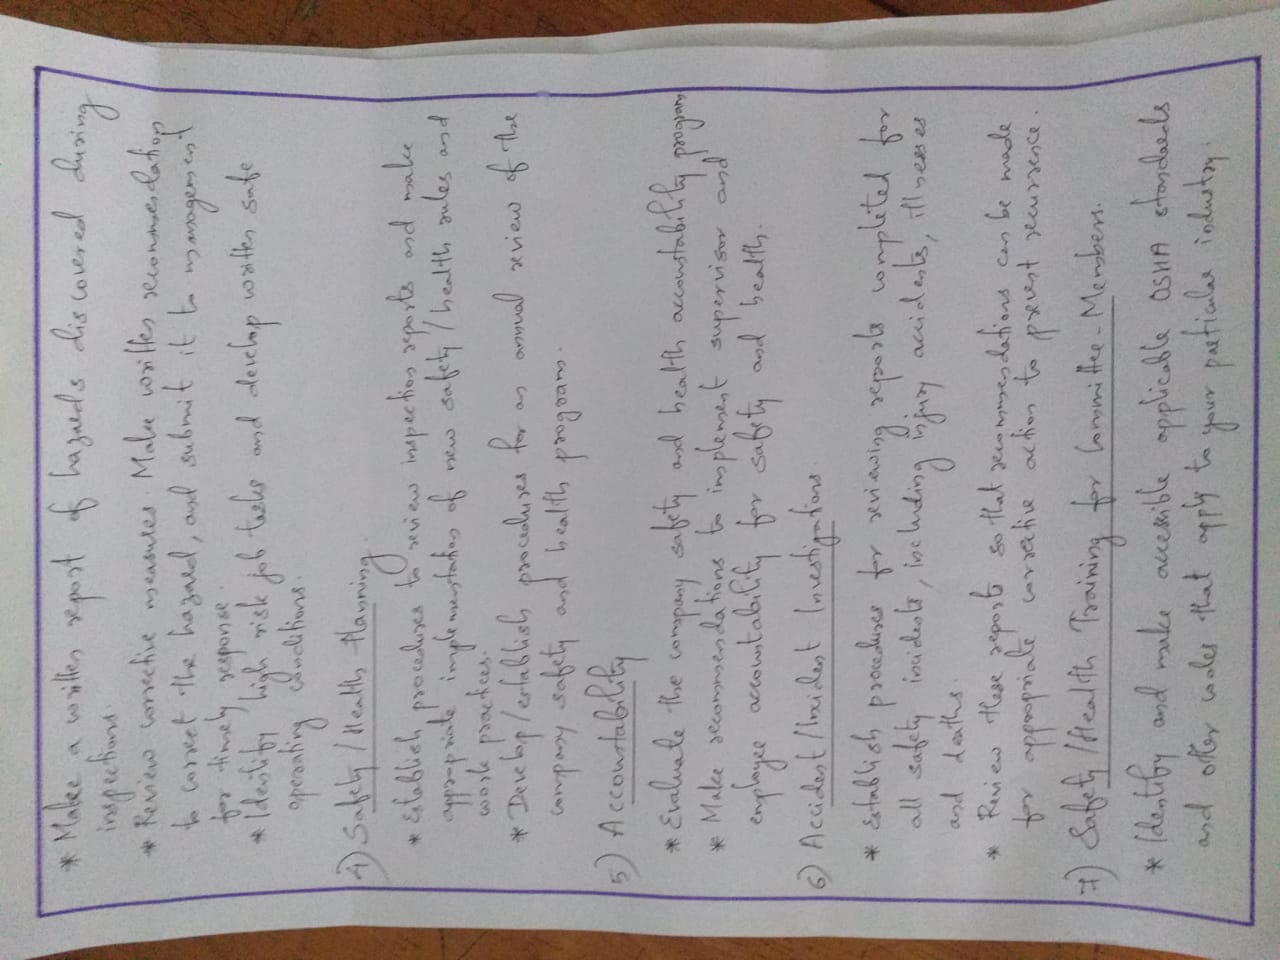 * Make a written report of hazards discovered during
inspections.
* Review corrective measures. Make written recommendation
to correct the hazard, and submit it to management
for timely response.
* Identify high risk job tasks and develop written safe
operating conditions.
4) Safety/Health Planning.
* Establish procedures to review inspection reports and make
appropriate implementation of new safety/health rules and
work practices.
* Develop/establish procedures for an annual review of the
company safety and health programs.
5) Accountability
* Evaluate the company safety and health accountability program
* Make recommendations to implement supervisor and
employee accountability for safety and health.
6) Accident/Incident Investigations.
* Establish procedures for reviewing reports completed for
all safety incidents, including injury accidents, illnesses
and deaths.
* Review these reports so that recommendations can be made
for appropriate corrective action to prevent recurrence.
7) Safety/Health Training for Committee-Members.
* Identify and make accessible applicable OSHA standards
and other codes that apply to your particular industry.